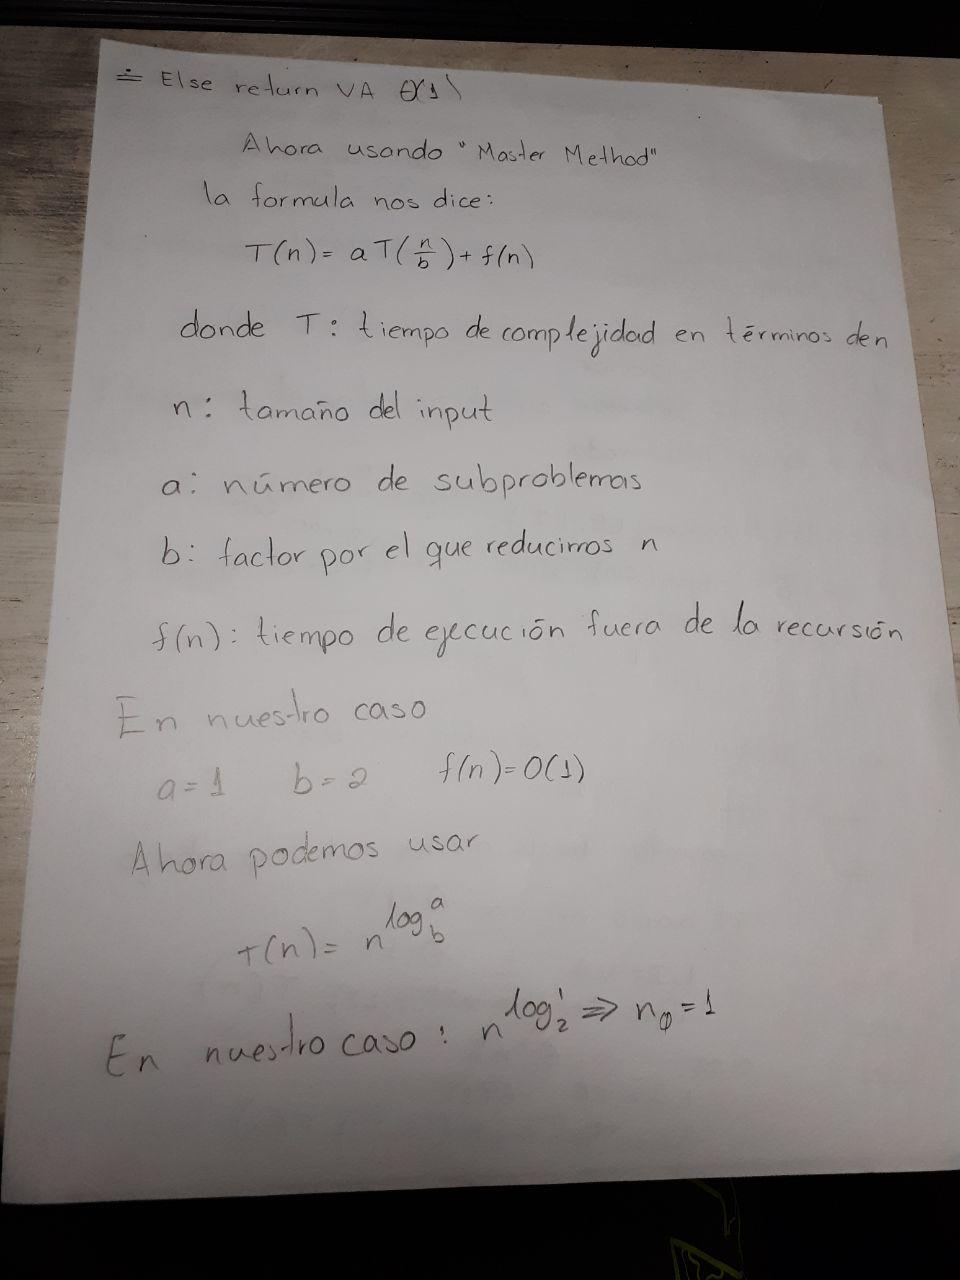 ≐ Else return VA Θ(1)
Ahora usando "Master Method"
la formula nos dice:
T(n) = a T(n/b) + f(n)
donde T: tiempo de complejidad en términos de n
n: tamaño del input
a: número de subproblemas
b: factor por el que reducimos n
f(n): tiempo de ejecución fuera de la recursión
En nuestro caso
a = 1 b = 2 f(n) = O(1)
Ahora podemos usar
T(n) = n^log_b^a
En nuestro caso: n^log_2^1 ⇒ n_0 = 1